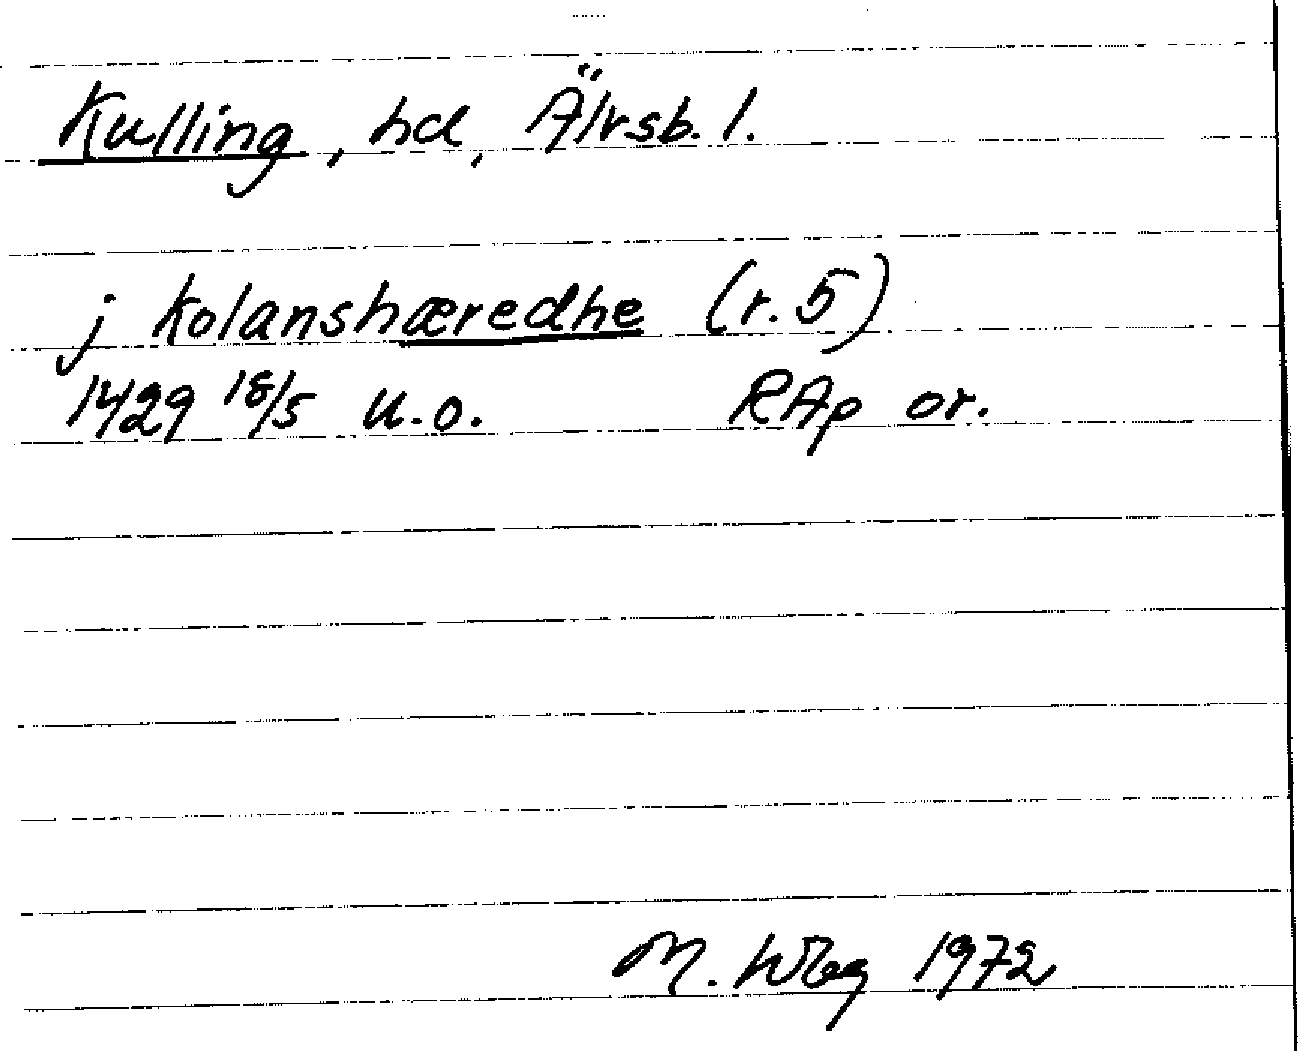 Kulling, hd, Älvsb. l.
j kolanshæredhe (r. 5)
1429 18/5 u.o. RAp or.
M. Wbg 1972